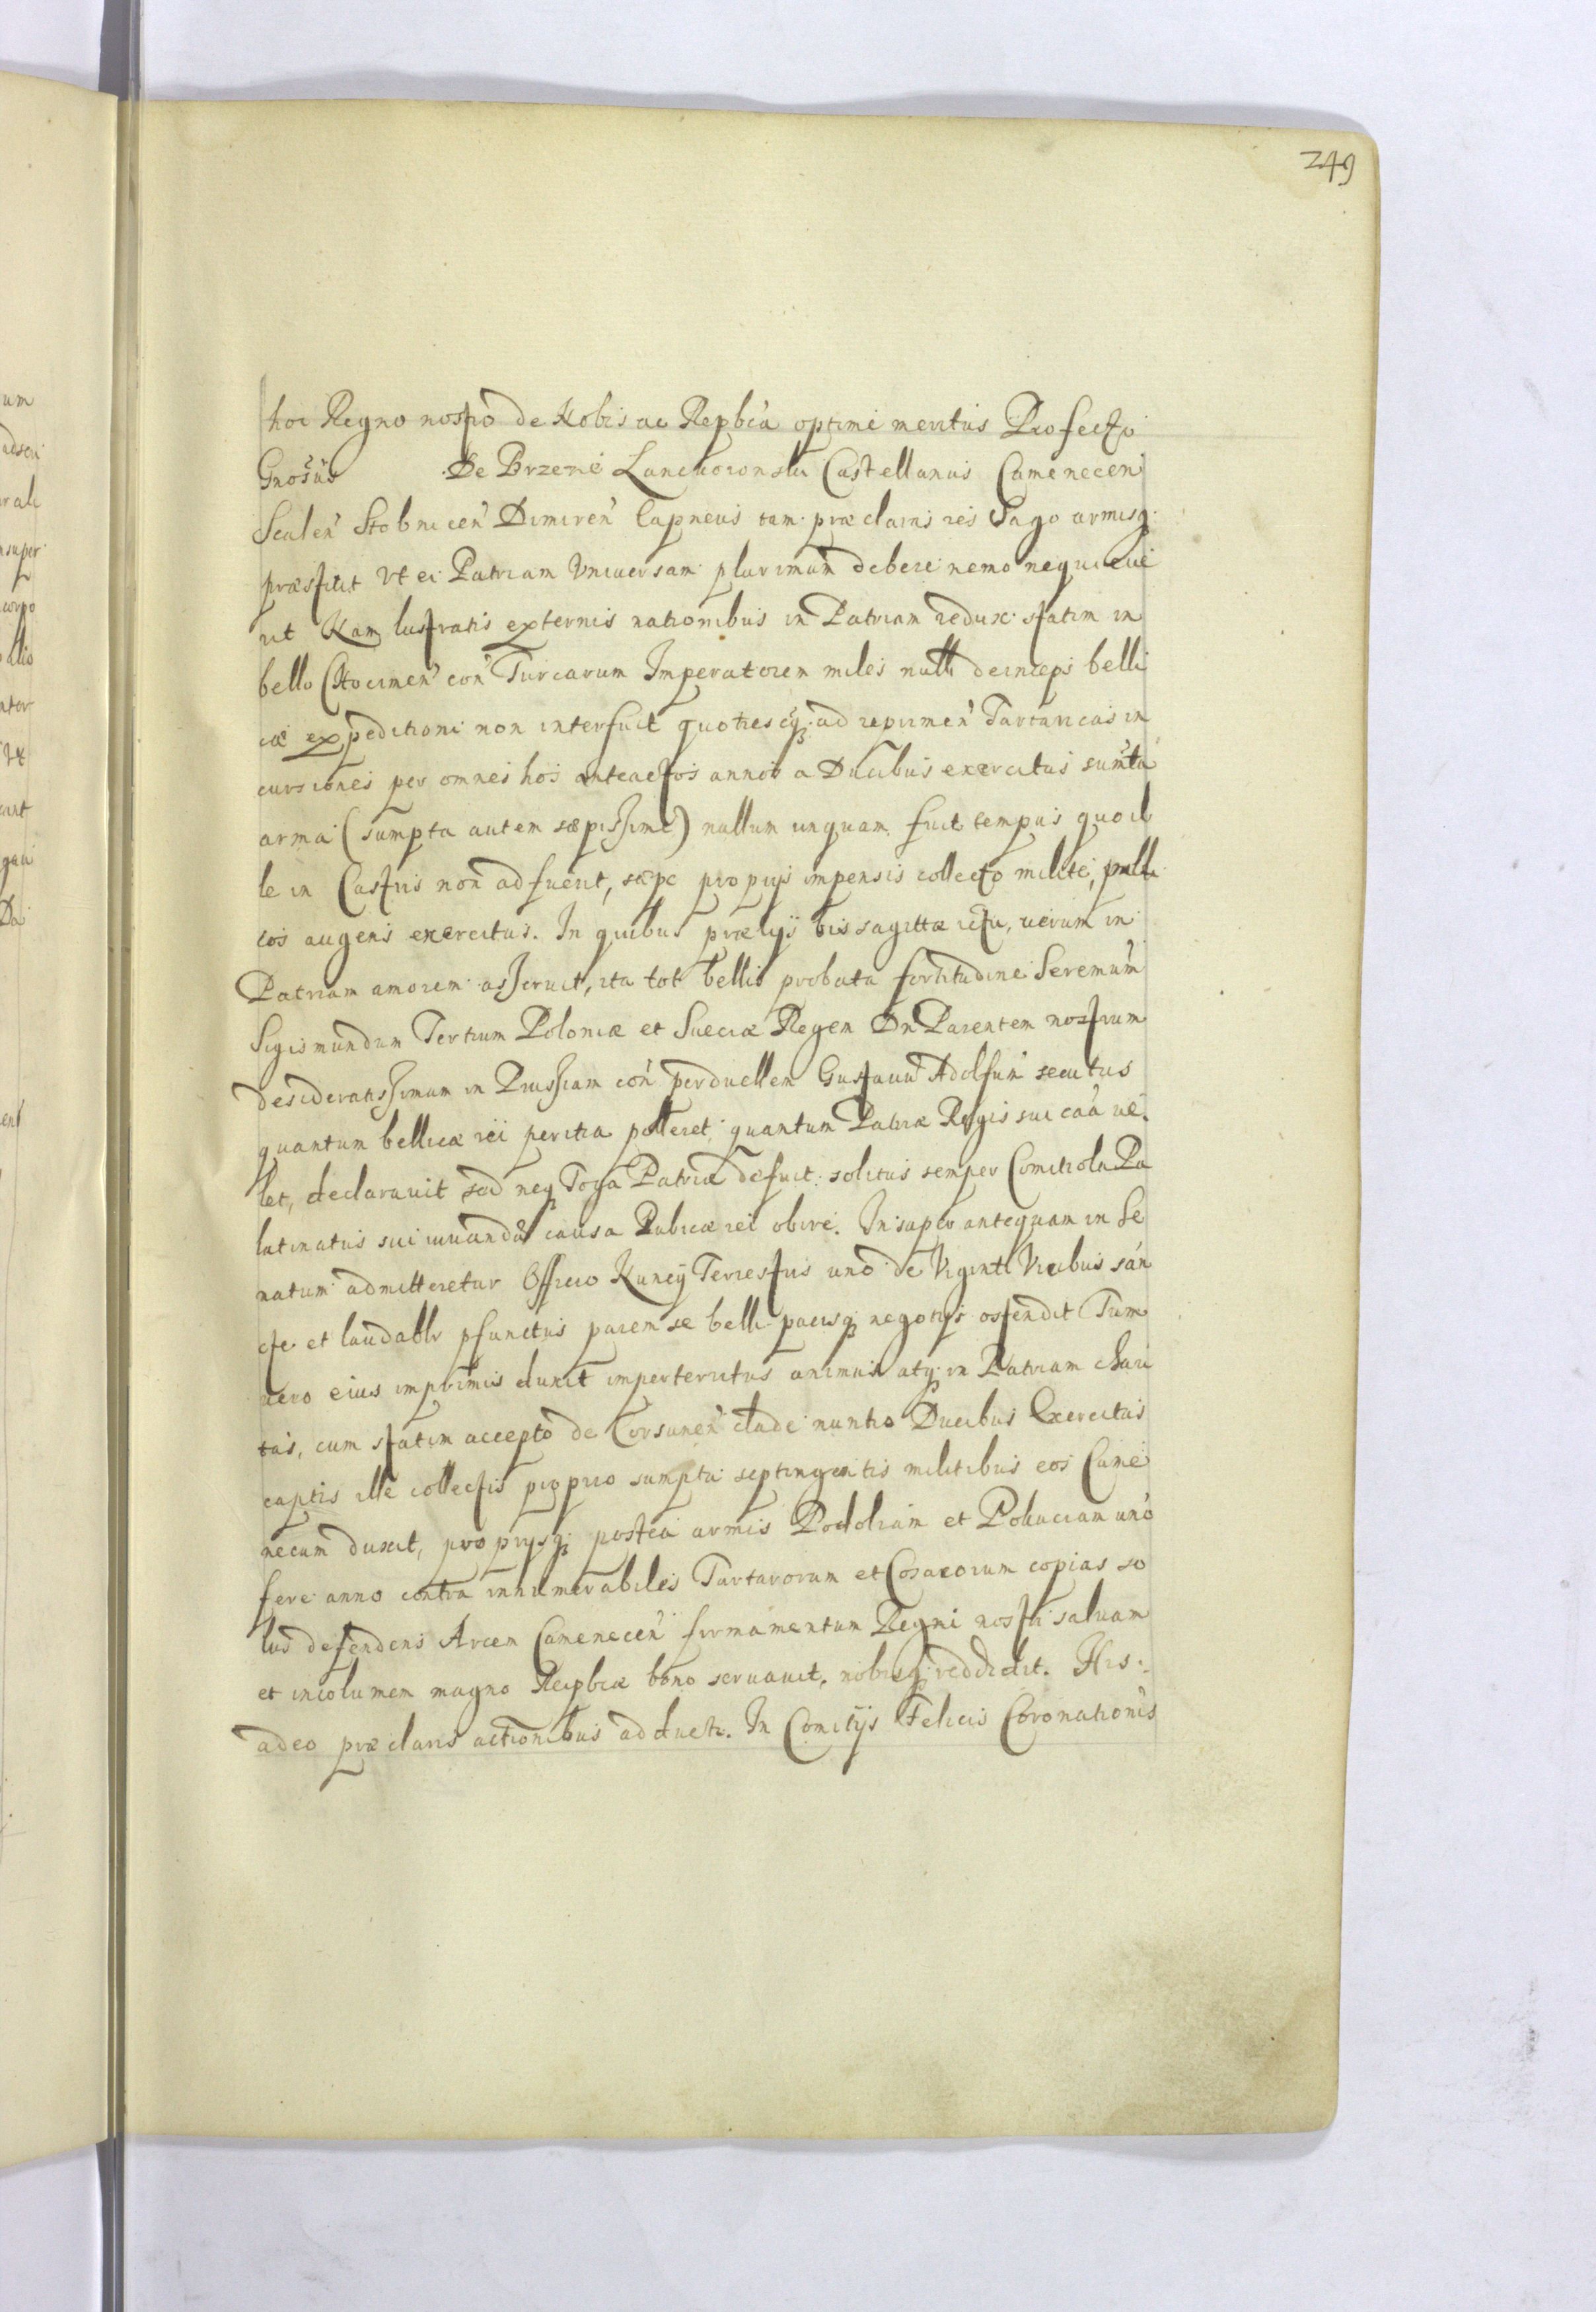 249
hoc Regno nostro de Nobis ac Repbca optime meritus Profecto
Gnosus De Brzezie Lanckoronski Castellanus Camenecen
Scalen Stobnicen Dimiren Capneus tam præclarus res Sago armisq
præstitit Vt ei Patriam Vniuersam plurimum debere nemo nequieue
rit Nam lustratis externis nationibus in Patriam redux statim in
bello Chocimen con Turcarum Imperatorem miles nulli deinceps belli
cæ expeditioni non interfuit quotiescq ad reprimen Tartaricas in
cursiones per omnes hos anteactos annos a Ducibus exercitus sumta
arma (sumpta autem sæpissime) nullum unquam fuit tempus quo il
le in Castris non adfuerit, sæpe proprys impensis collecto milite,
cos augens exercitus. In quibus prælys bis sagittæ ictu, uerum in
Patriam amorem asseruit, ita tot bellis probata fortitudine Seremum
Sigismundum Tertium Poloniæ et Sueciæ Regem Dn Parentem nostrum
desideratissimum in Prussiam con perduellem Gustauu Adolfum secutus
quantum bellicæ rei peritia polleret, quantum Patriæ Regis sui caa ue
let, declarauit sed neq Toga Patriæ defuit: solitus semper Comitiola Pa
latinatus sui iuuandæ causa Publicæ rei obire. Insuper antequam in Se
natum admitteretur Officio Nuncy Terrestris uno de Viginti Vicibus san
cte et laudablr pfunctus parem se belli pacisq negotys ostendit Tum
uero eius imprimis eluxit imperterritus animus atq in Patriam chari
tas, cum statim accepto de Corsunen clade nuntio Ducibus Exercitus
captis ille collectis proprio sumptu septingentis militibus eos Came
necum duxit, proprysq postea armis Podoliam et Pokuciam uno
fere anno contra innumerabiles Tartarorum et Cosacorum copias so
lus defendens Arcem Camenecen firmamentum Regni nostri saluam
et incolumem magno Reipbcæ bono seruauit, nobisq reddidit. His
adeo præclaris actionibus adducti. In Comitys Felicis Coronationis